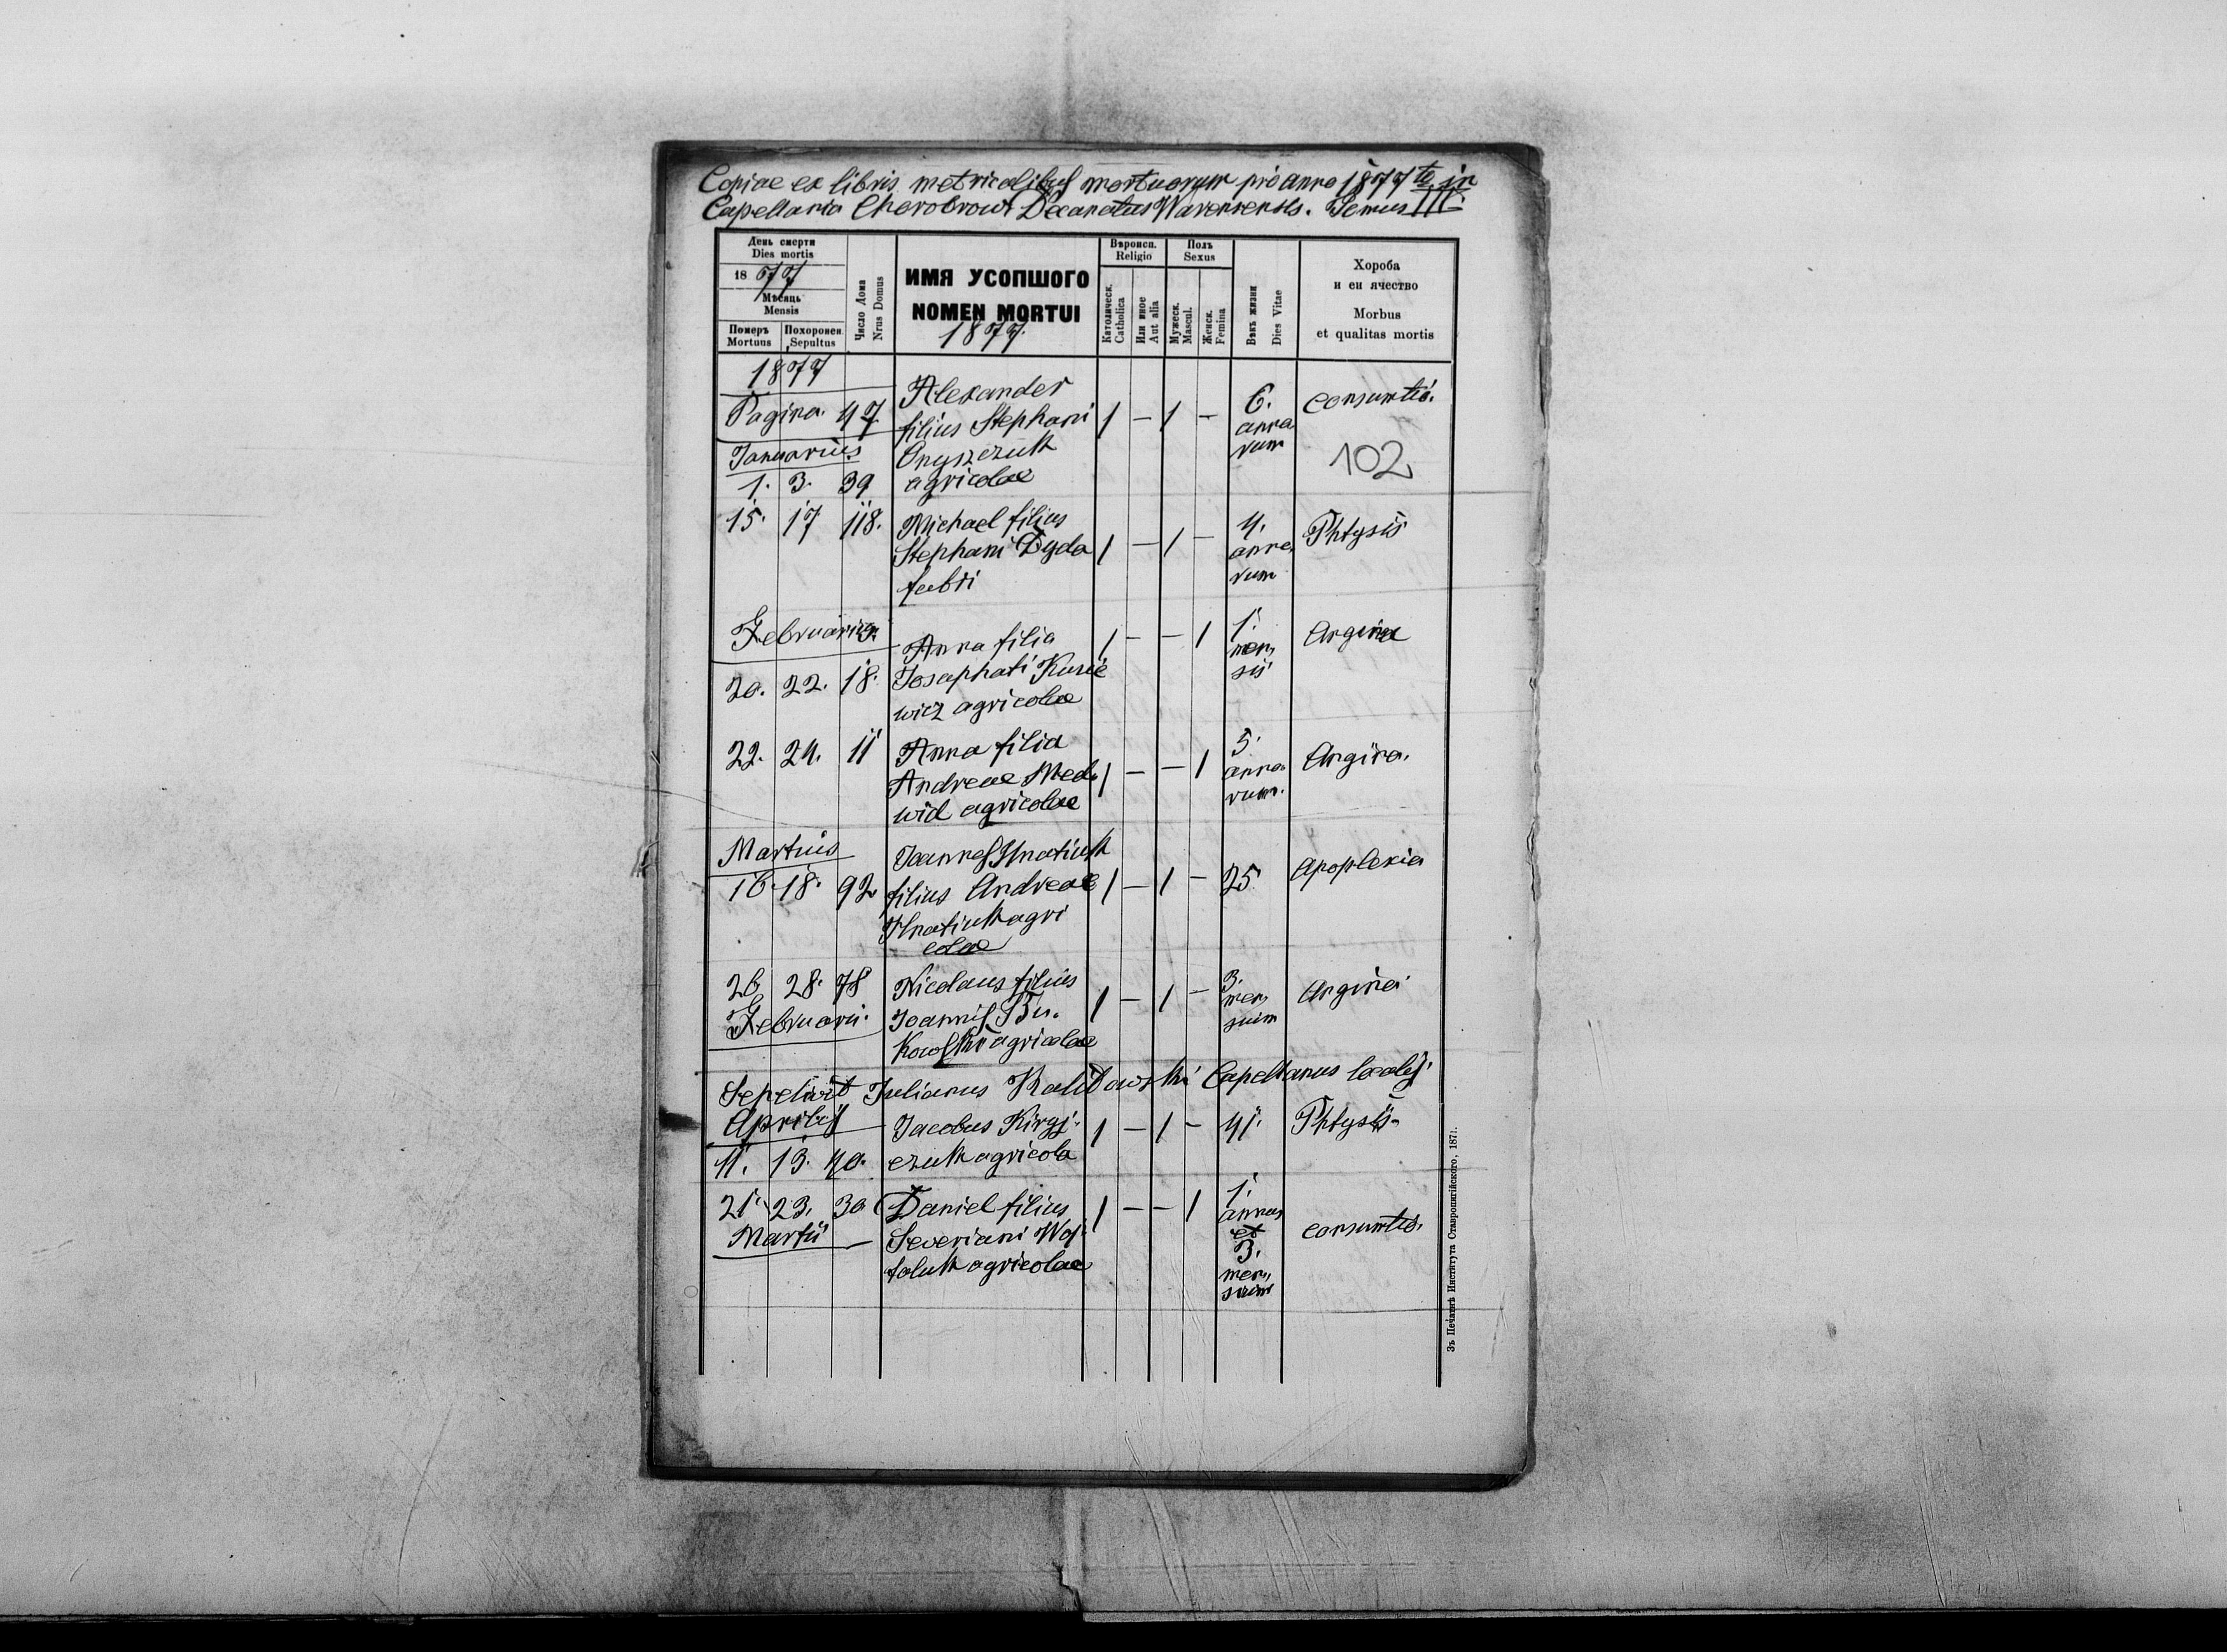 Copiae ex libris metricalibus mortuorum pro anno 1877 to in
Capellania Chorobrow Decanatus Warensensis. Tomus III.
День смерти
Dies mortis
1877
Мѣсяць
Mensis
Померъ
Mortuus
Похоронен.
Sepultus
Число Дома
Nrus Domus
ИМЯ УСОПШОГО
NOMEN MORTUI
1877.
Вѣроисп.
Religio
Католическ.
Catholica
Или иное
Aut alia
Полъ
Sexus
Мужеск.
Mascul.
Женск.
Femina
Вѣкъ жизни
Dies Vitae
Хороба
и еи ячество
Morbus
et qualitas mortis
1877
Pagina. 47.
Januarius
1. 3. 39
Alexander
filius Stephani
Onyszczuk
agricolae
1 — 1 —
6.
anno
rum
consumtio.
102
15. 17 118.
Michael filius
Stephani Dyda
fabri
1 — 1 —
4.
anno
rum
Phtysis
Februarius.
20. 22. 18.
Anna filia
Josaphati Kurie
wicz agricolae
1 — — 1
1.
men,
sis
Angina
22. 24. 11
Anna filia
Andreae Med.
wid agricolae
1 — — 1
5.
anno
rum.
Angina.
Martius
16. 18. 92.
Joannes Hnatiuk
filius Andreae
Hnatiuk agri
colae
1 — 1 — 25
Apoplexia
26 28. 78
Februarii.
Nicolaus filius
Joannis Bu.
kowski agricolae
1 — 1 —
3.
men,
sium
Angina
Sepelivit Julianus Kalitowski Capellanus localis.
Aprilis
11. 13. 40.
Jacobus Kirgj.
czuk agricola
1 — 1 — 41.
Phtysis
21. 23. 30
Martii
Daniel filius
Severiani Woj.
taluk agricolae
1 — — 1
1.
annus
et
3.
men,
sium
consumtio.
Зъ Печатнѣ Института Ставропигійского, 1871.